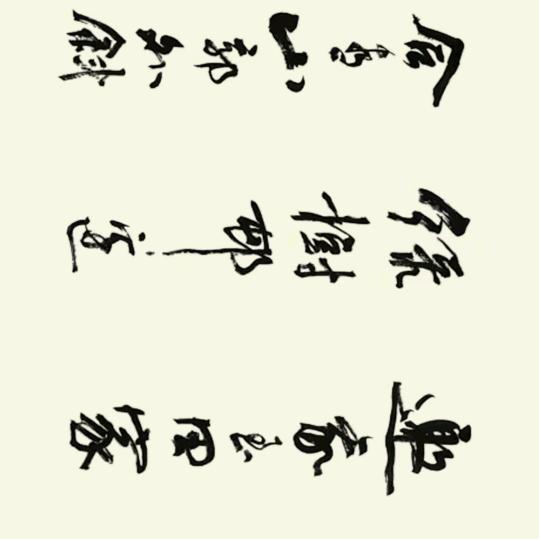 邀我至田家
綠樹邨邊
合青山郭外斜